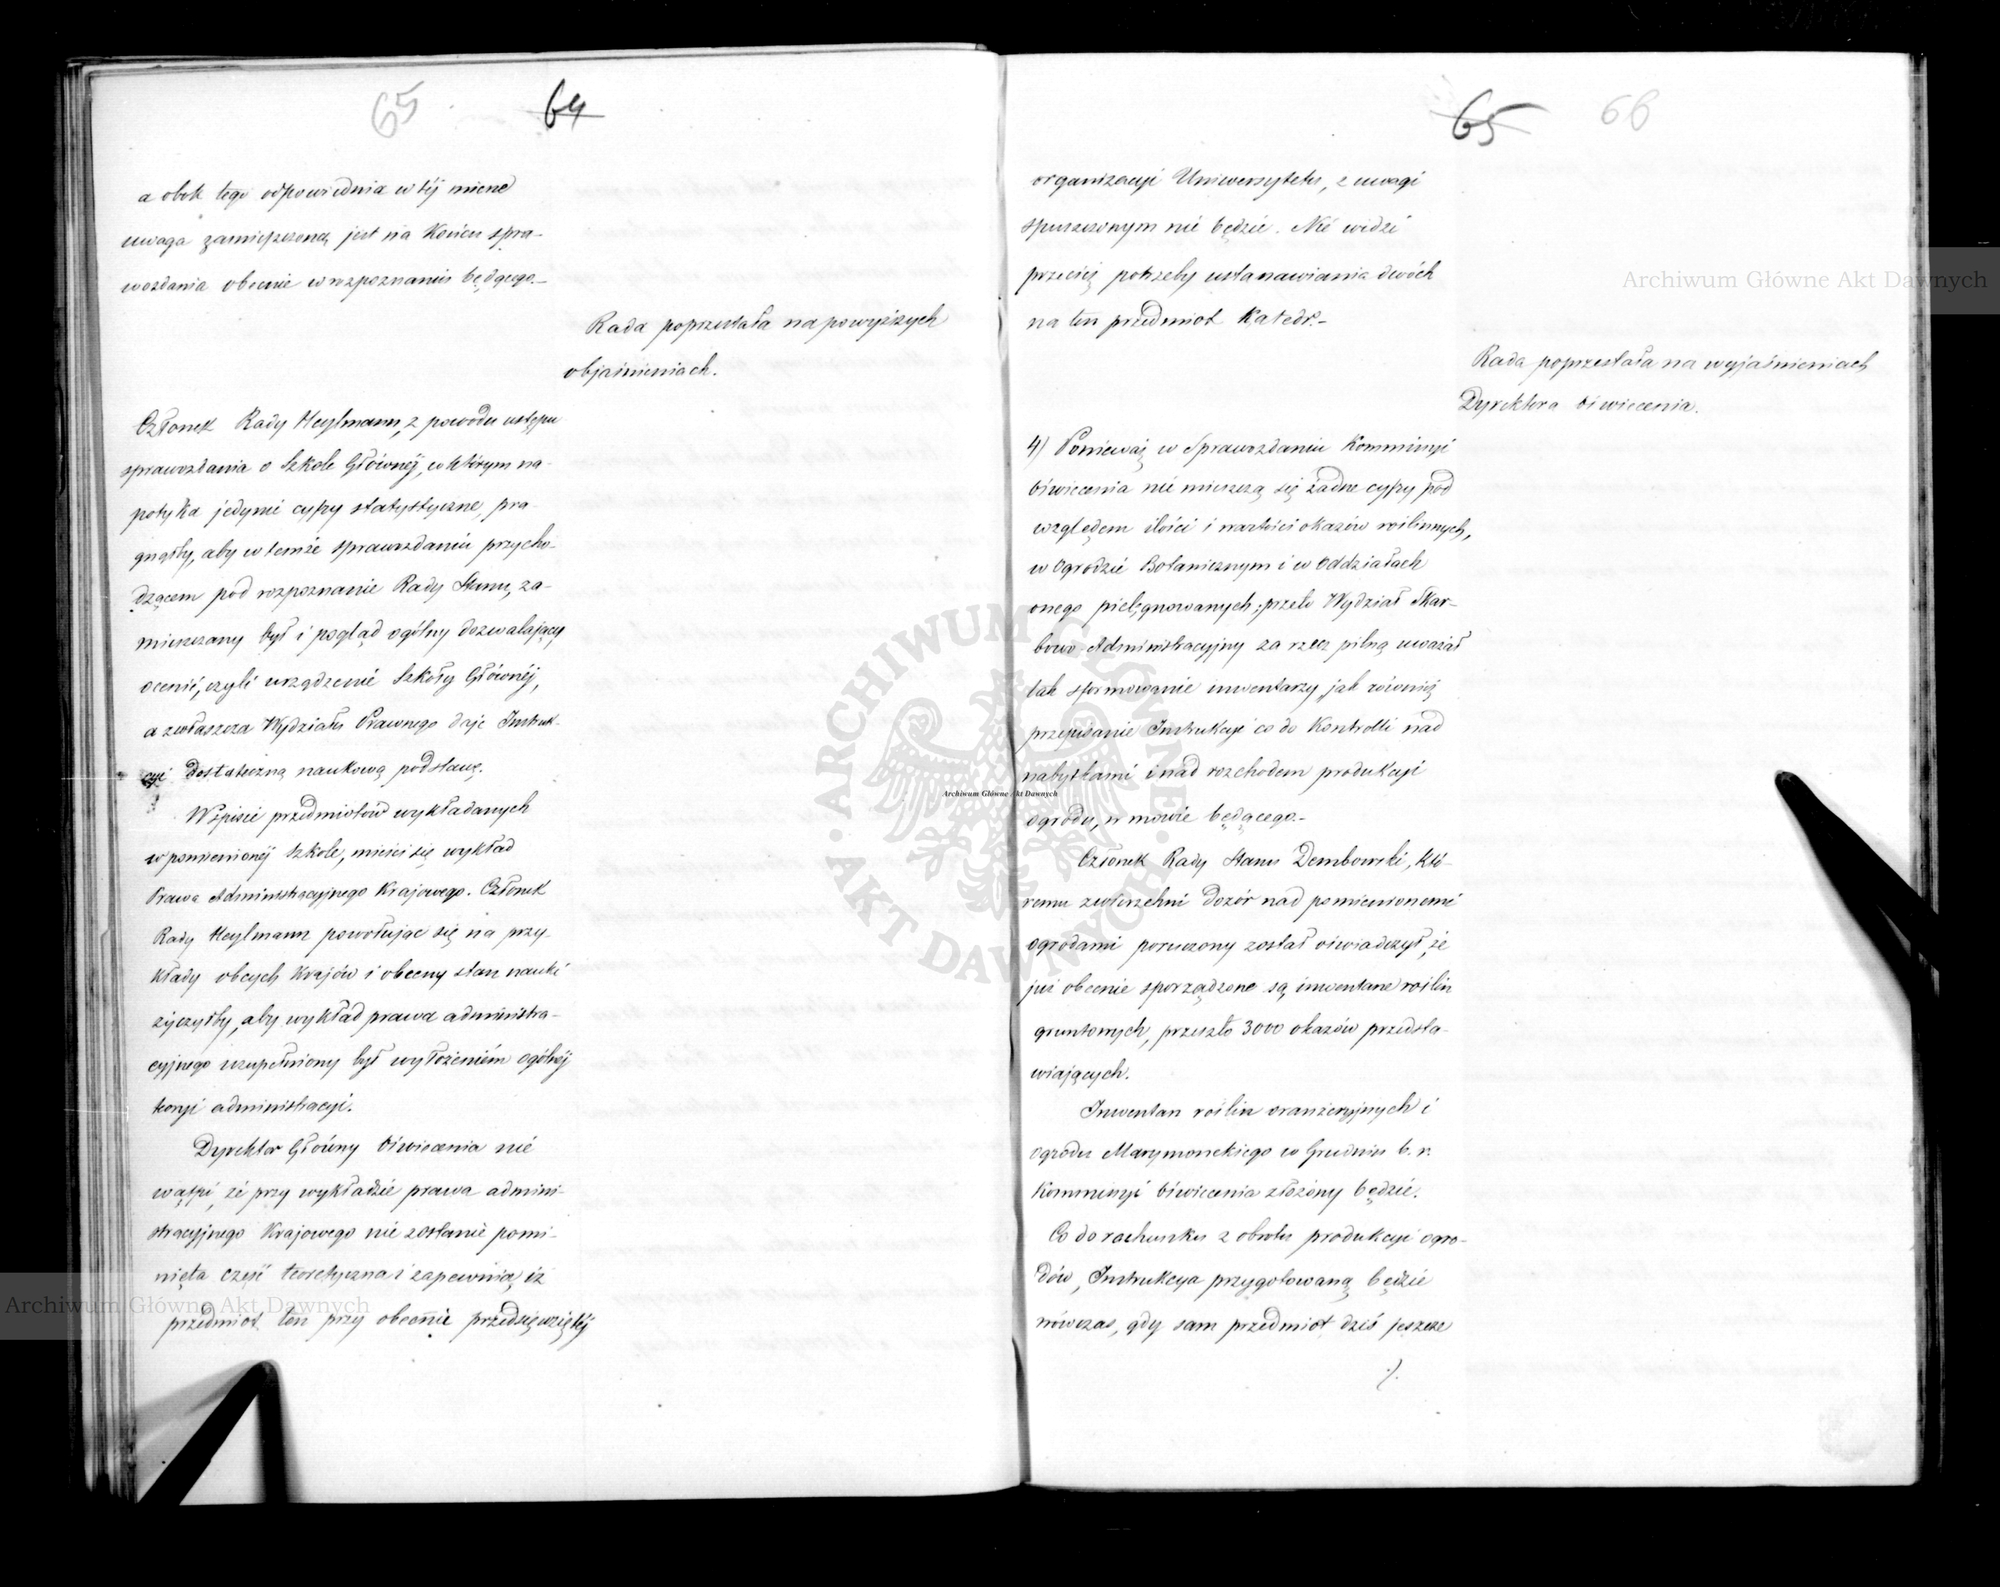 65 64
a obok tego odpowiednia w téj mierze
uwaga zamieszczoną jest na Końcu spra-
wozdania obecnie w rozpoznaniu będącego.—
Rada poprzestała na powyższych
objaśnieniach.
Członek Rady Heylmann, z powodu ustępu
sprawozdania o Szkole Głównéj, w którym na-
potyka jedynie cyfry statystyczne, pra-
gnąłby, aby w temże sprawozdaniu przycho-
dzącem pod rozpoznanie Rady Stanu, za-
mieszczany był i pogląd ogólny dozwalający
ocenić, czyli urządzenie Szkoły Głównéj,
a zwłaszcza Wydziału Prawnego daje Instruk-
cyi dostateczną naukową podstawę.
W spisie przedmiotów wykładanych
w pomienionéj Szkole, mieści się wykład
Prawa Administracyjnego Krajowego. Członek
Rady Heylmann powołując się na przy-
kłady obcych Krajów i obecny stan nauki
życzyłby, aby wykład prawa administra-
cyjnego uzupełniony był wyłożeniem ogólnéj
teoryi administracyi.
Dyrektor Główny Oświecenia nie
wątpi, że przy wykładzie prawa admini-
stracyjnego Krajowego nie zostanie pomi-
nięta część teoretyczna i zapewnia, iż
przedmiot ten przy obecnie przedsięwziętéj
65 66
organizacyi Uniwersytetu, z uwagi
spuszczonym nie będzie. Nie widzi
przecież potrzeby ustanawiania dwóch
na ten przedmiot Katedr.—
Rada poprzestała na wyjaśnieniach
Dyrektora Oświecenia.
4) Ponieważ w Sprawozdaniu Kommissyi
Oświecenia nie mieszczą się żadne cyfry pod
względem ilości i wartości okazów roślinnych,
w Ogrodzie Botanicznym i w Oddziałach
onego pielęgnowanych; przeto Wydział Skar-
bowo-Administracyjny za rzecz pilną uważał
tak sformowanie inwentarzy jak również
przepisanie Instrukcyi co do Kontrolli nad
nabytkami i nad rozchodem produkcyi
ogrodu, w mowie będącego.—
Członek Rady Stanu Dembowski, któ-
remu zwierzchni dozór nad pomienionemi
ogrodami poruczony został oświadczył, że
już obecnie sporządzone są, inwentarze roślin
gruntowych, przeszło 3000 okazów przedsta-
wiających.
Inwentarz roślin oranżeryjnych i
ogrodu Marymonckiego w Grudniu b. r.
Kommissyi Oświecenia złożony będzie.
Co do rachunku z obrotu produkcyi ogro-
dów, Instrukcya przygotowaną będzie
nówczas, gdy sam przedmiot dziś jeszcze
./.
Archiwum Główne Akt Dawnych
Archiwum Główne Akt Dawnych
Archiwum Główne Akt Dawnych
ARCHIWUM GŁÓWNE
AKT DAWNYCH